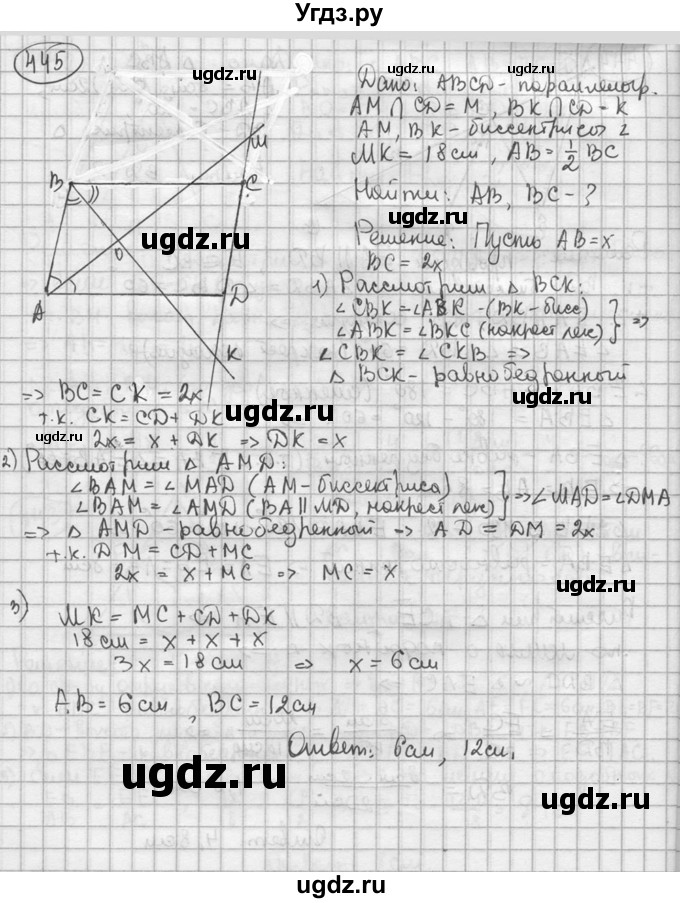 Угдз.ру
445
ugdz.ru
ugdz.ru
Дано: ABCD - параллелогр.
AM ∩ CD = M, BK ∩ CD - K
AM, BK - биссектрисы
MK = 18 см, AB = 1/2 BC
Найти: AB, BC - ?
ugdz.ru
Решение: Пусть AB = x
BC = 2x
M
B
C
O
A
D
K
ugdz.ru
1) Рассмотрим △ BCK:
∠CBK = ∠ABK - (BK - бисс)
∠ABK = ∠BKC (накрест леж) } =>
∠CBK = ∠CKB =>
△ BCK - равнобедренный
=> BC = CK = 2x
т.к. CK = CD + DK
2x = x + DK => DK = x
ugdz.ru
ugdz.ru
2) Рассмотрим △ AMD:
∠BAM = ∠MAD (AM - биссектриса)
∠BAM = ∠AMD (BA || MD, накрест леж) } => ∠MAD = ∠DMA
=> △ AMD - равнобедренный => AD = DM = 2x
т.к. DM = CD + MC
2x = x + MC => MC = x
ugdz.ru
3) MK = MC + CD + DK
18 см = x + x + x
3x = 18 см => x = 6 см
AB = 6 см, BC = 12 см
Ответ: 6 см, 12 см.
ugdz.ru
ugdz.ru
ugdz.ru
ugdz.ru